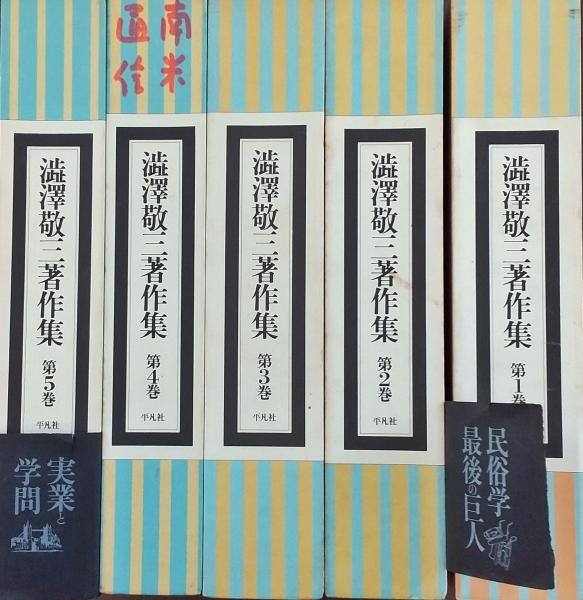 澁澤敬三著作集
第1巻
民俗学
最後の巨人
澁澤敬三著作集
第2巻
平凡社
澁澤敬三著作集
第3巻
平凡社
南米
通信
澁澤敬三著作集
第4巻
平凡社
澁澤敬三著作集
第5巻
平凡社
実業と
学問